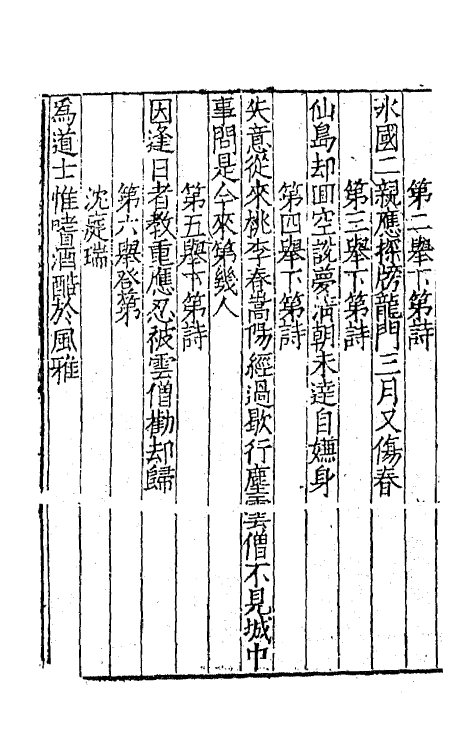 第二舉下第詩
水國二親應探榜龍門三月又傷春
第三舉下第詩
仙島却回空說夢清朝未達自嫌身
第四舉下第詩
失意從來桃李春嵩陽經過歇行塵雲僧不見城中
事問是今來第幾人
第五舉下第詩
因逢日者教重應忍被雲僧勸却歸
第六舉登第
沈庭瑞
爲道士惟嗜酒酷於風雅